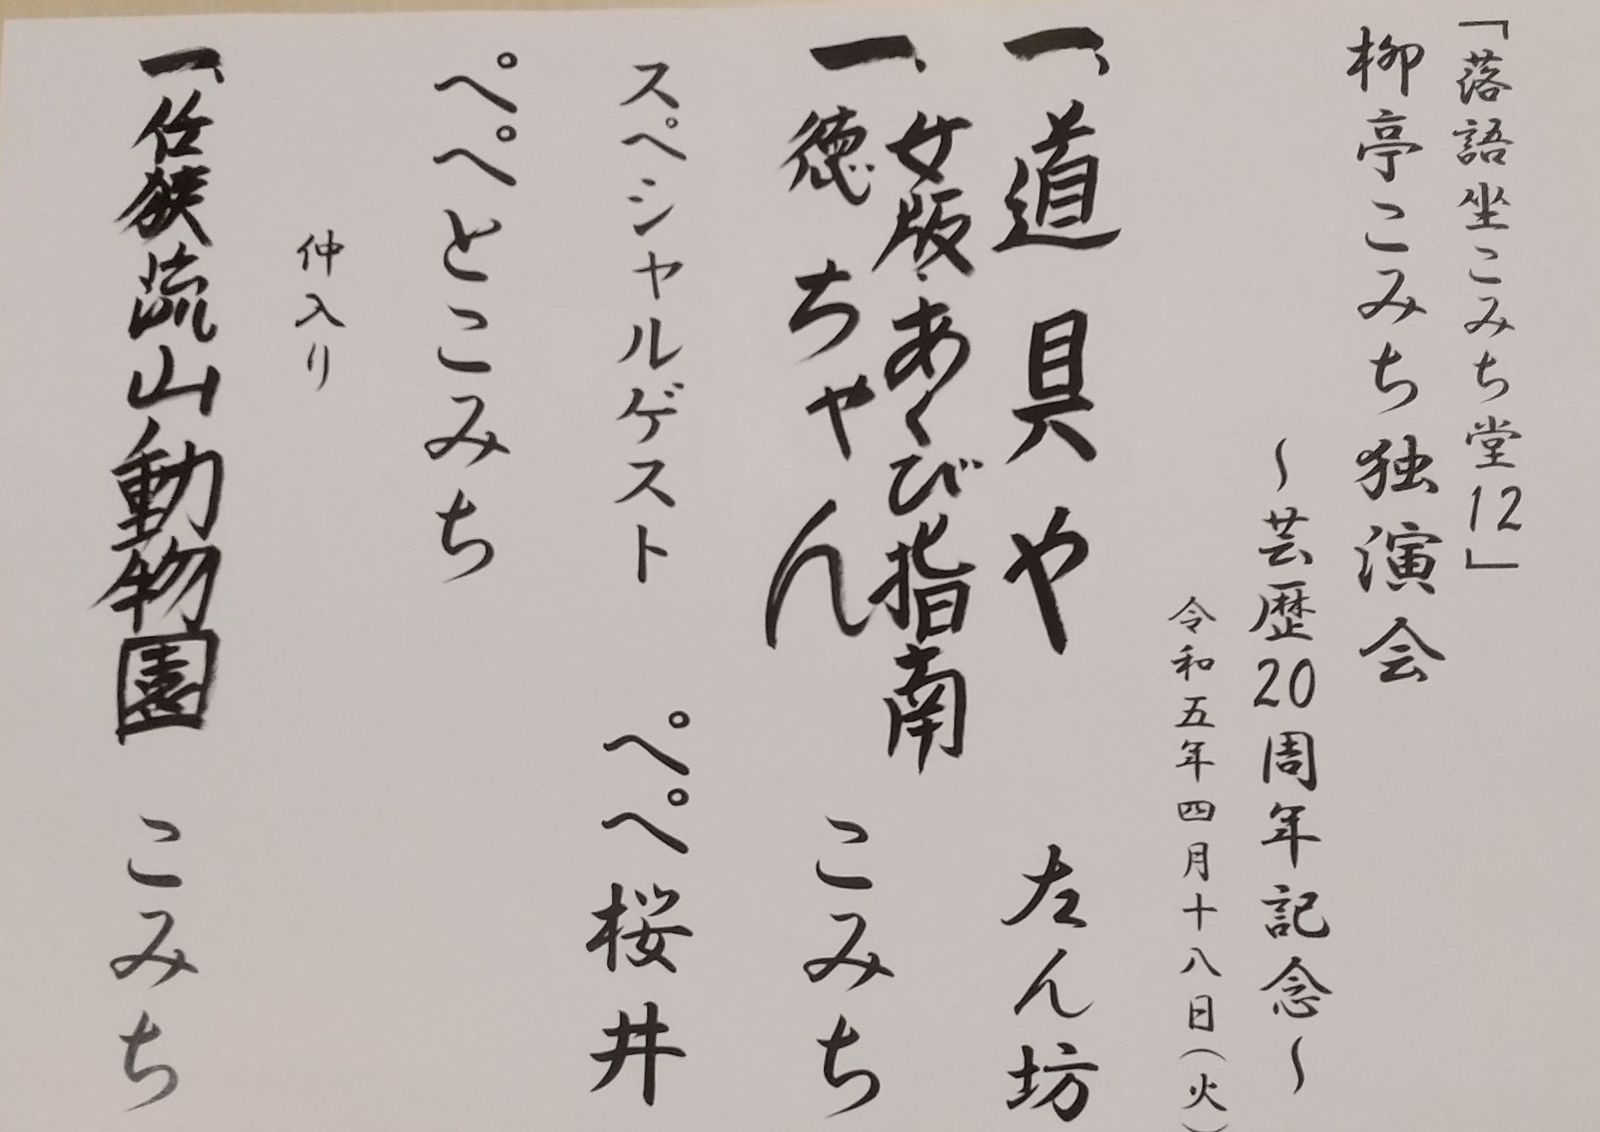 「落語坐こみち堂12」
柳亭こみち独演会
～芸歴20周年記念～
令和五年四月十八日(火)
一、道具や 左ん坊
一、女版・あくび指南
徳ちゃん こみち
スペシャルゲスト
ぺぺ桜井
ぺぺとこみち
仲入り
一、任侠流山動物園 こみち